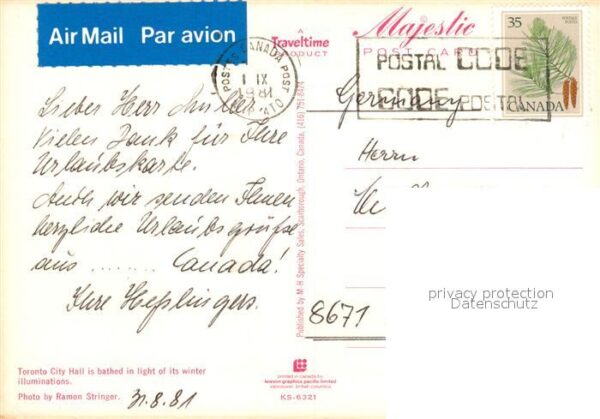 Air Mail Par avion
A
Traveltime
PRODUCT
Majestic
POST CARD
35
POSTAGE
POSTES
CANADA
POSTES CANADA POST
1 IX
1981
POSTAL CODE
CODE POSTAL
Lieber Herr
Vielen Dank für Ihre
Urlaubskarte.
Auch wir senden Ihnen
herzliche Urlaubsgrüße
aus ....... Canada!
Ihre Heßlingers.
Germany
Herrn
8671
Published by M·H Specialty Sales, Scarborough, Ontario, Canada, (416) 751-8474
privacy protection
Datenschutz
Toronto City Hall is bathed in light of its winter
illuminations.
Photo by Ramon Stringer.
31.8.81
printed in canada by
lawson graphics pacific limited
vancouver, british columbia
KS-6321